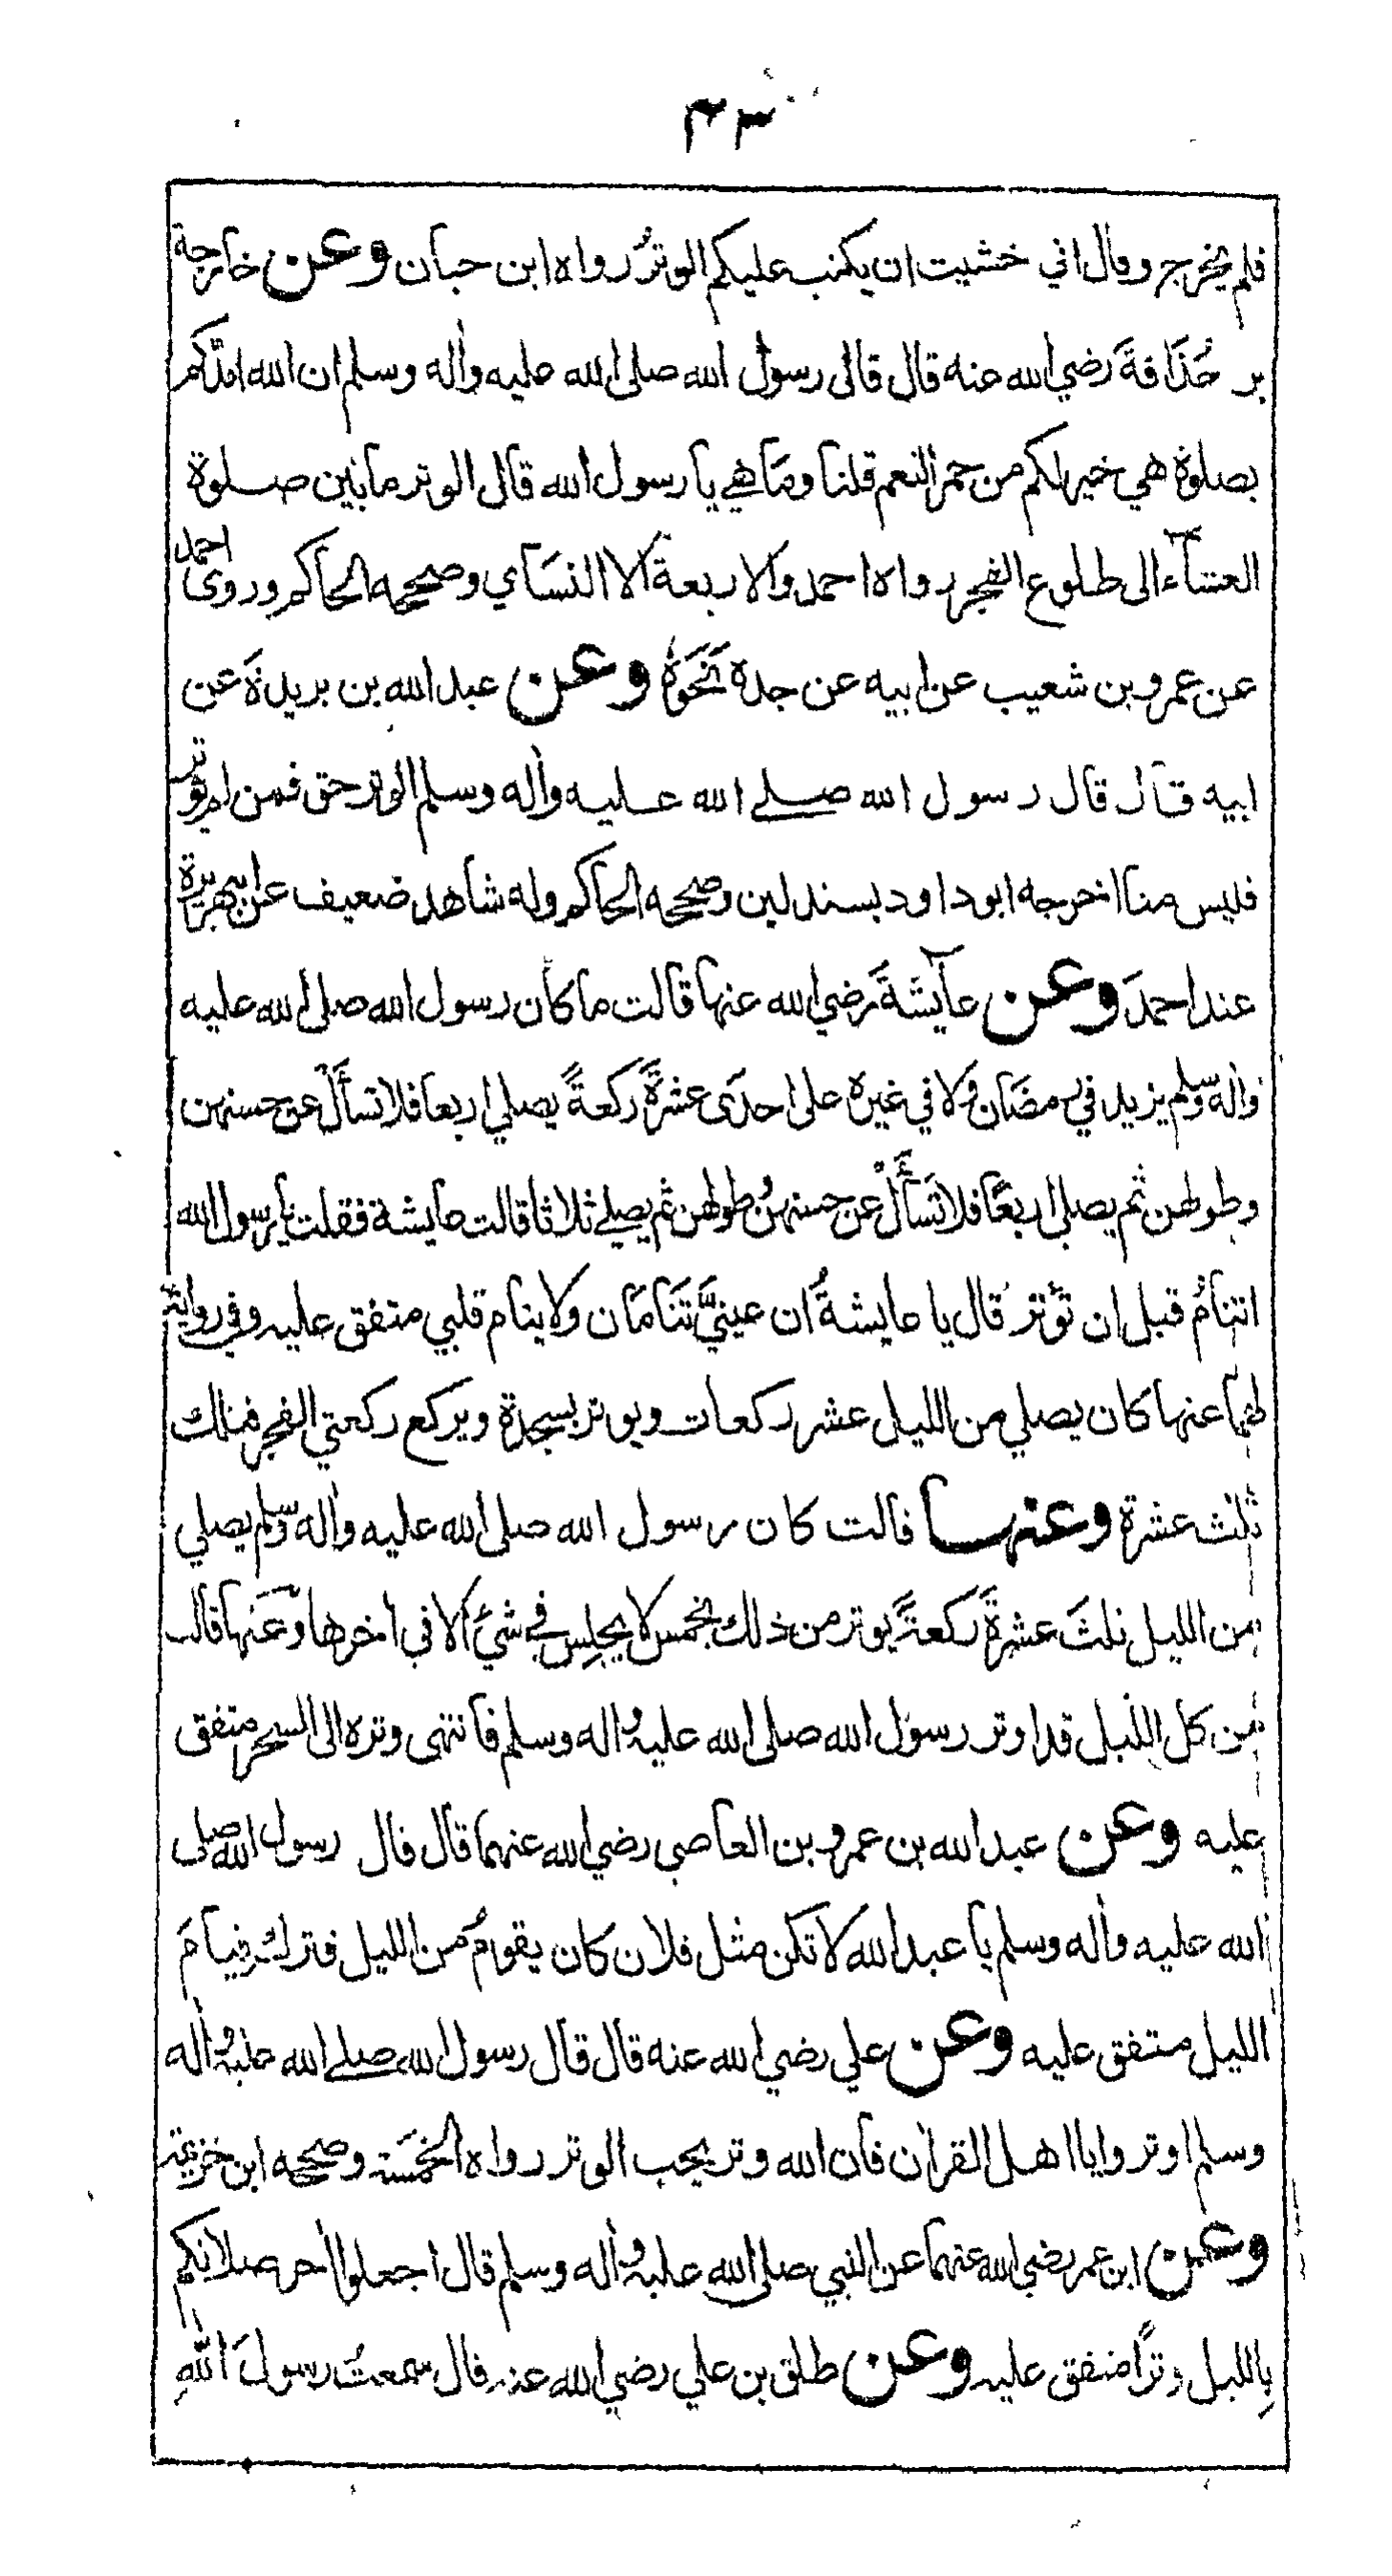 ٤٣
فلم يخرج وقال اني خشيت ان يكتب عليكم الوترُ رواه ابن حبان وعن خارجة
بن حُذَافةَ رضي الله عنه قال قال رسول الله صلى الله عليه واٰله وسلم ان الله امدّكم
بصلوة هي خير لكم من حمر النعم قلنا وما هي يا رسول الله قال الوتر ما بين صلوة
العشآء الى طلوع الفجر رواه احمد والاربعة الا النساي وصححه الحاكم وروى احمد
عن عمرو بن شعيب عن ابيه عن جده نَحْوَهُ وعن عبد الله بن بريدة عن
ابيه قال قال رسول الله صلے الله عليه واٰله وسلم الوتر حق فمن لم يوتر
فليس منا اخرجه ابو داود بسند لين وصححه الحاكم وله شاهد ضعيف عن ابي هريرة
عند احمدَ وعن عآيشَةَ رضي الله عنها قالت ما كان رسول الله صلى الله عليه
واٰله وسلم يزيد في رمضان ولا في غيره على احدَى عشرةَ ركعةً يصلي اربعا فلا تسأَلْ عن حسنهن
وطولهن ثم يصلى اربعًا فلا تَسأَلْ عن حسنهن وطولهن ثم يصلے ثلاثا قالت عايشة فقلت يا رسول الله
اتنامُ قبل ان تُوتر قال يا عايشةُ ان عينيَّ تَنَامَان ولا ينام قلبي متفق عليه وفي رواية
لهما عنها كان يصلي من الليل عشر ركعات ويوتر بسجدة ويركع ركعتي الفجر فتلك
ثلث عشرة وعنها قالت كان رسول الله صلى الله عليه واٰله وسلم يصلي
من الليل ثلثَ عشرةَ ركعةً يوتر من ذلك بخمس لا يجلِس في شيءٍ الا في اٰخرها وعَنها قالت
من كل الليل قد اوتر رسول الله صلى الله عليه واٰله وسلم فانتهى وتره الى السحر متفق
عليه وعن عبد الله بن عمرو بن العاصي رضي الله عنهما قال قال رسول الله صلى
الله عليه واٰله وسلم يا عبد الله لا تكن مثل فلان كان يقومُ من الليل فترك قيامَ
الليل متفق عليه وعن علي رضي الله عنه قال قال رسول الله صلے الله عليه واٰله
وسلم اوتروا يا اهل القراٰن فان الله وتر يحب الوتر رواه الخمسَة وصححه ابن خزيمة
وعن ابن عمر رضي الله عنهما عن النبي صلى الله عليه واٰله وسلم قال اجعلوا اٰخر صلاتكم
بِالليل وترًا متفق عليه وعن طلق بن علي رضي الله عنه قال سمعتُ رسولَ اللّٰهِ